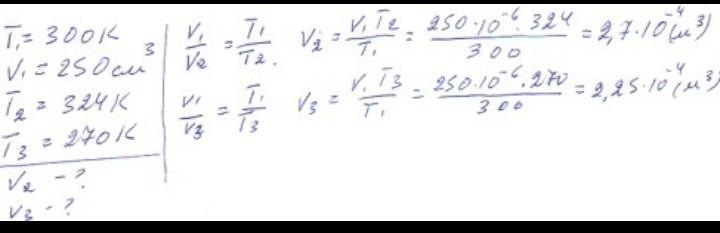 T₁ = 300К
V₁ = 250 см³
T₂ = 324К
T₃ = 270К
V₂ - ?
V₃ - ?
V₁/V₂ = T₁/T₂. V₂ = V₁T₂/T₁ = 250·10⁻⁶·324/300 = 2,7·10⁻⁴(м³)
V₁/V₃ = T₁/T₃ V₃ = V₁T₃/T₁ = 250·10⁻⁶·270/300 = 2,25·10⁻⁴(м³)